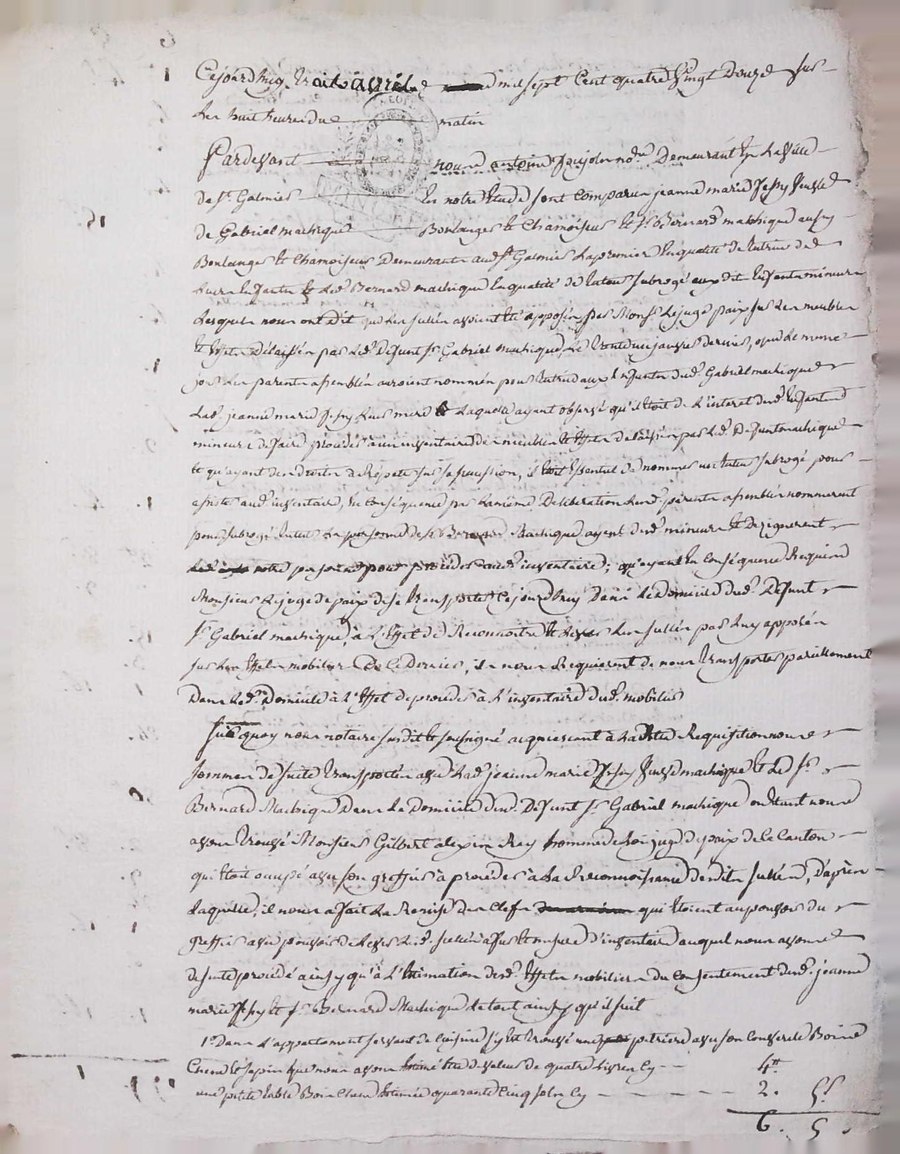 Cejourdhuy huit avril mil sept Cent quatre vingt Douze sur
Les huit heures du matin
Pardevant nous antoine notre Demeurant En La ville
de St. Galmier En notre Etude sont comparu jeanne marie veuve
de Gabriel machique Boulanger Et Chamoiseur Et sr. Bernard machique aussy
Boulanger Et Chamoiseur Demeurants aud. st. Galmier La premiere En qualité de tutrice de
Leurs Enfants Et Led. Bernard machique En qualité de tuteur subrogé auxdit Enfants mineurs
Lesquels nous ont Dit que Les sullés avoient Eté apposés par Monsr. Le juge de paix sur Les meubles
Et Effets Délaissés par Led. Defunt sr. Gabriel machique, Le trente un janvier dernier, que Le meme
jour Les parents assemblés auroient nommés pour tutrice aux Enfants dud. Gabriel machique
Lad. jeanne marie Leur mere Laquelle ayant observé qu'il Etoit de L'interet desd. Enfants
mineurs de faire proceder à un inventaire des meubles Et Effets delaissés par Led. Defunt machique
Et qu'ayant des droits à Repeter sur sa sucession, il Etoit Essentiel de nommer un tuteur subrogé pour
assister aud. inventaire, En conséquence par La meme Deliberation Lesd. parents assemblés nommerent
pour subrogé tuteur La personne de sr. Bernard Machique ayeul desd. mineurs Et Dezignerent
notre personne pour proceder aud. inventaire; qu'ayant En conséquence Requierd
Monsieur Le juge de paix de se transporter Cejourdhuy Dans Le Domicile dud. Defunt
sr. Gabriel machique, à L'Effet de Reconnoitre Et Lever Les sullés par Luy apposés
sur Les Effets mobiliers De Ce Dernier, ils nous Requierent de nous transporter pareillement
Dans Led. Domicile à L'Effet de proceder à L'inventaire dud. mobilier
Sur quoy nous notaire susdit Et soussigné acquiescant à La dite Requisition nous
sommes de suite transportés avec Lad. jeanne marie veuve machique Et Led. sr.
Bernard Machique Dans Le Domicile dud. Defunt sr. Gabriel machique ou Etant nous
avons trouvé Monsieur Gilbert alexis Rey homme de Loi juge de paix de Ce Canton
qui Etoit occupé avec son greffier à proceder à La Reconnoissance desdits sullés, d'après
Laquelle, il nous a fait La Remise des Clefs qui Etoient au pouvoir du
greffier avec pouvoir de Lever Led. sullés à fur Et mesure d'inventaire auquel nous avons
de suite procédé ainsy qu'à L'Estimation desd. Effets mobiliers du consentement desd. jeanne
marie Et sr. Bernard Machique Le tout ainsy qu'il suit
1° Dans L'appartement servant de Cuisine s'y Est trouvé une petriere avec son Couvercle Bois
Chene Et sapin que nous avons Estimé Etre de valeur de quatre Livres Cy 4tt
une petite table Bois Chene Estimée quarante Cinq sols Cy 2. 5s.
6. 5.